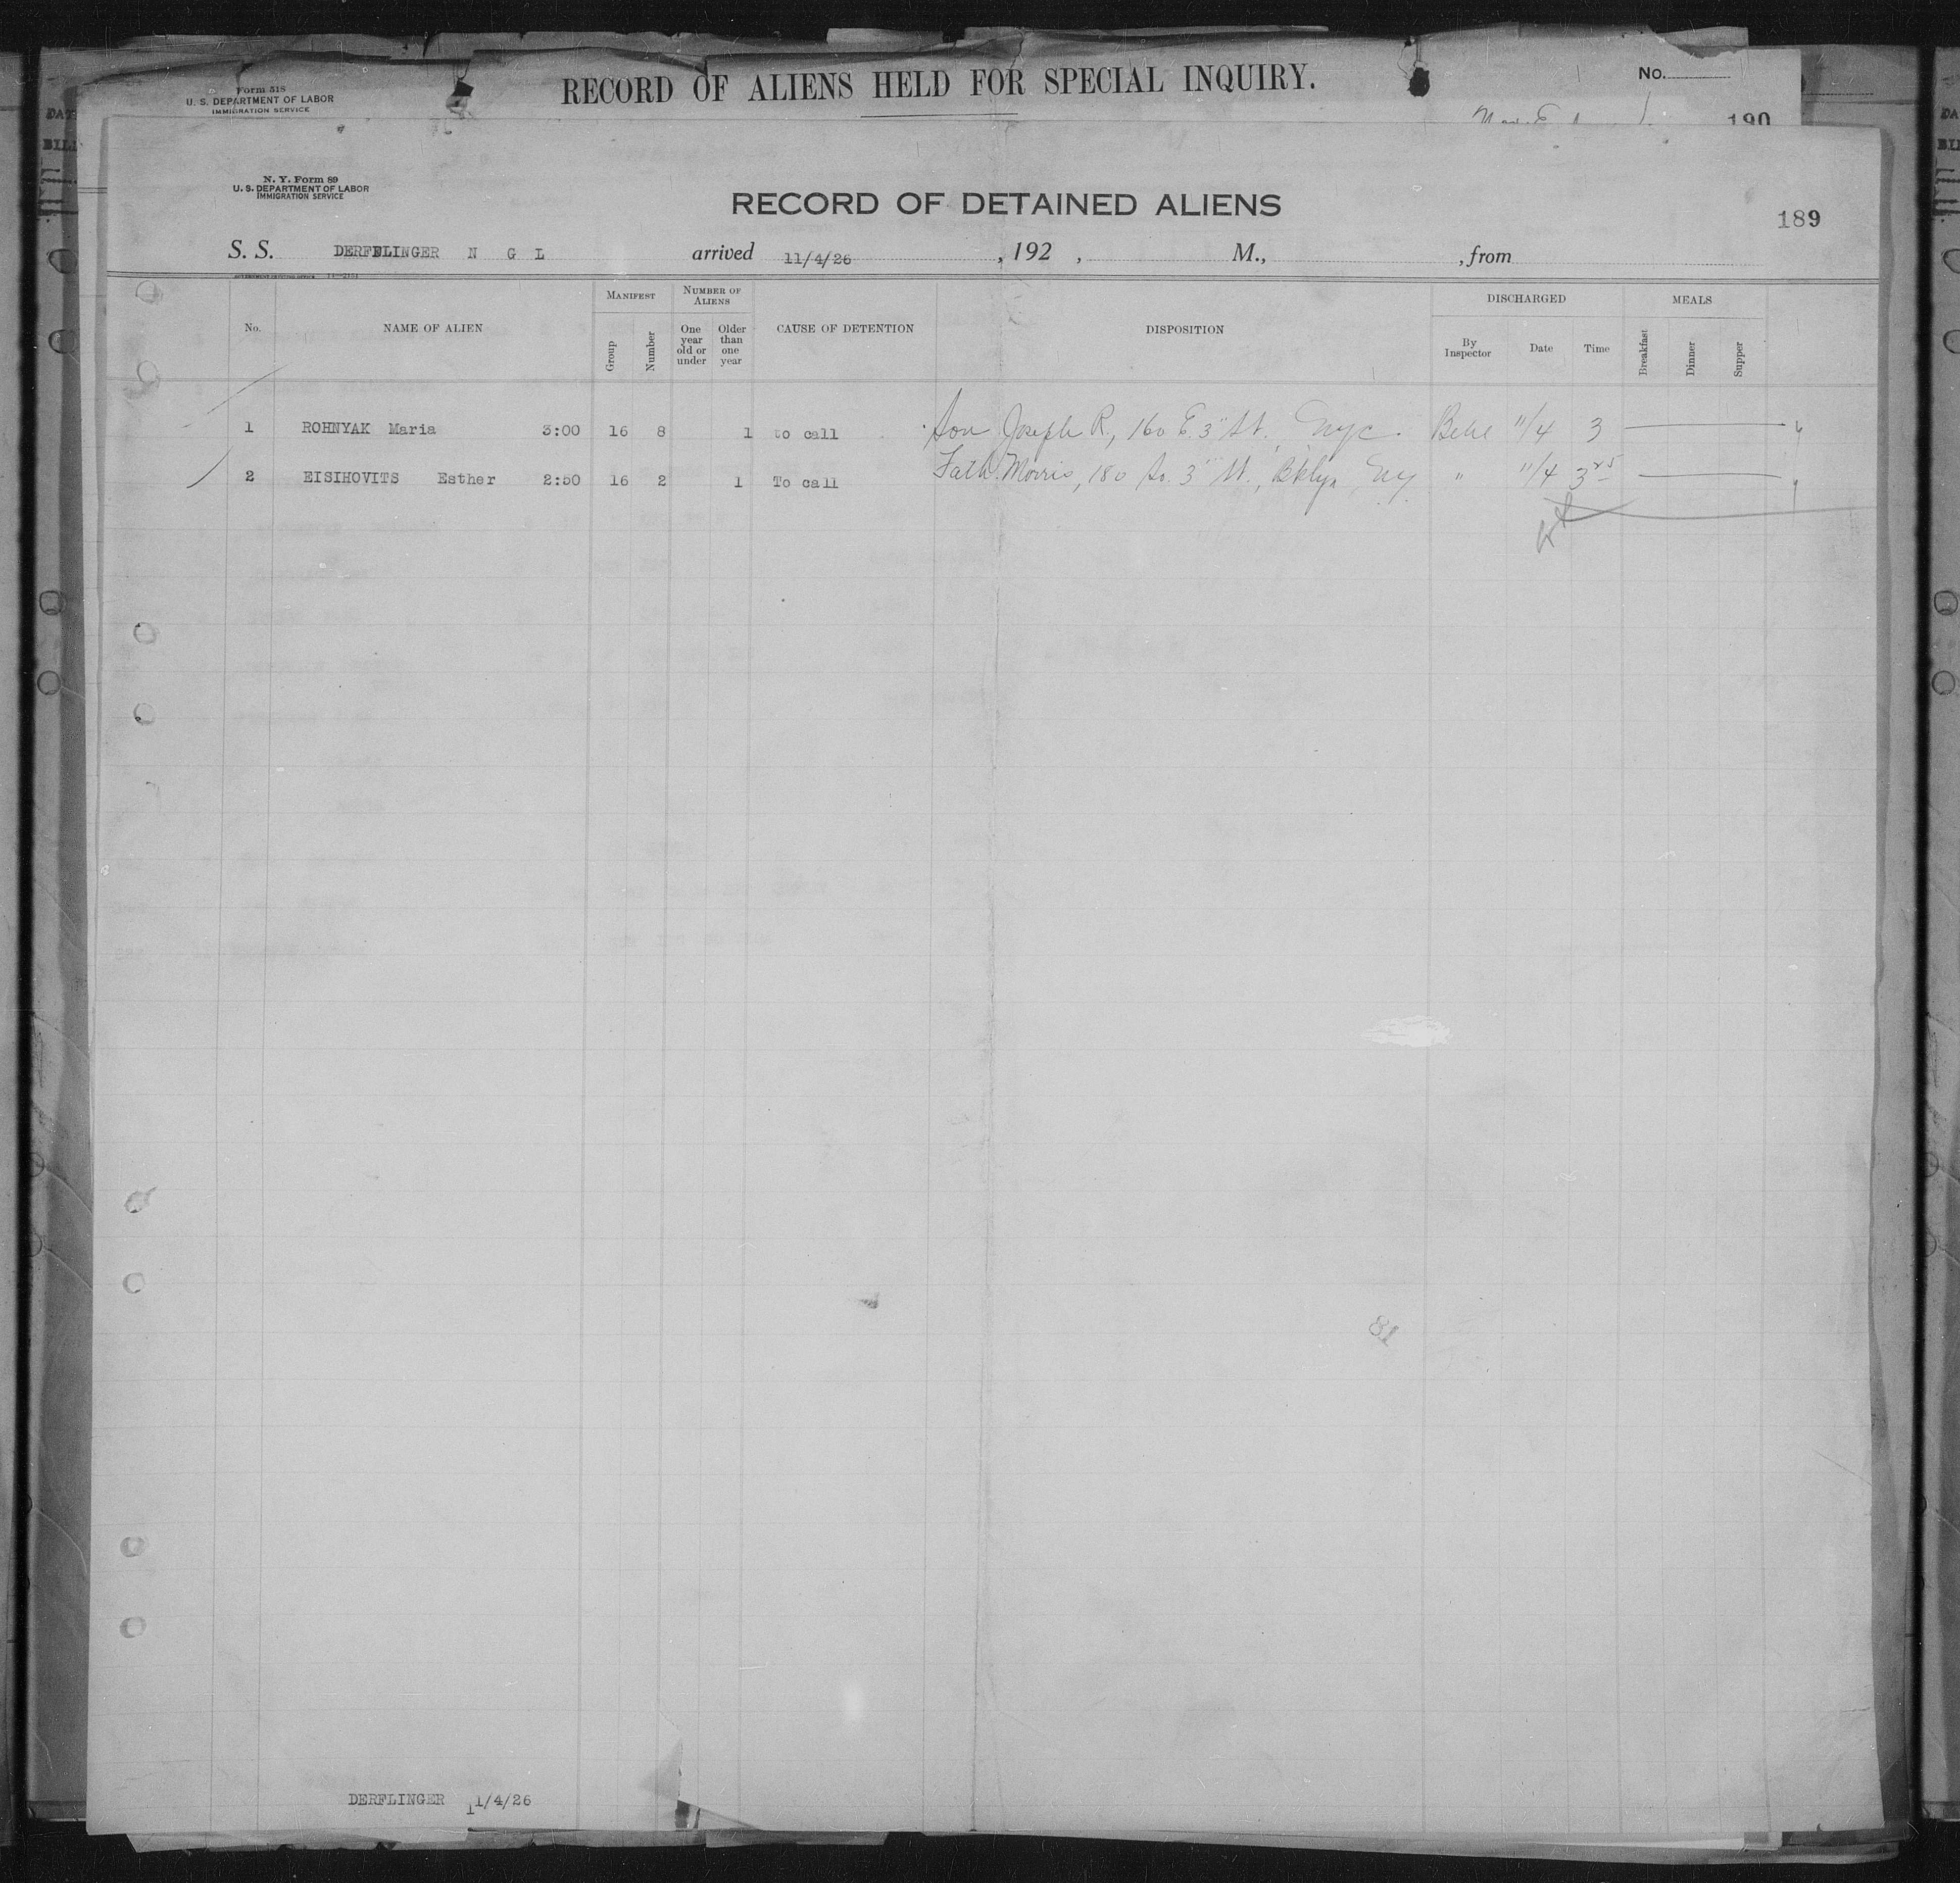 Form 518
U. S. DEPARTMENT OF LABOR
IMMIGRATION SERVICE
RECORD OF ALIENS HELD FOR SPECIAL INQUIRY.
No.
190
N. Y. Form 89
U. S. DEPARTMENT OF LABOR
IMMIGRATION SERVICE
RECORD OF DETAINED ALIENS
189
S. S. DERFFLINGER N G L arrived 11/4/26 , 192 , M., , from
No. NAME OF ALIEN MANIFEST Group Number NUMBER OF ALIENS One year old or under Older than one year CAUSE OF DETENTION DISPOSITION DISCHARGED By Inspector Date Time MEALS Breakfast Dinner Supper
1 ROHNYAK Maria 3:00 16 8 1 to call Son Joseph R., 160 E. 3" St., NYC. 11/4 3
2 EISIHOVITS Esther 2:50 16 2 1 To call Fath. Morris, 180 So. 3" St., Bklyn NY " 11/4 3
81
DERFLINGER 11/4/26